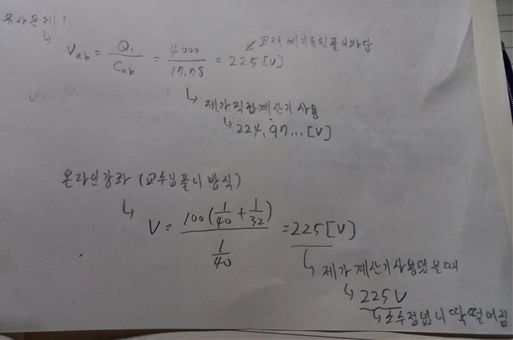 유사문제1
V_ab = Q_1 / C_ab = 4000 / 17,78 = 225 [V]
제가직접계산기사용
224,97... [V]
온라인강좌 (교수님풀이방식)
V = 100(1/40 + 1/32) / (1/40) = 225 [V]
제가 계산기사용했을때
225V
소수점없니 딱떨어짐